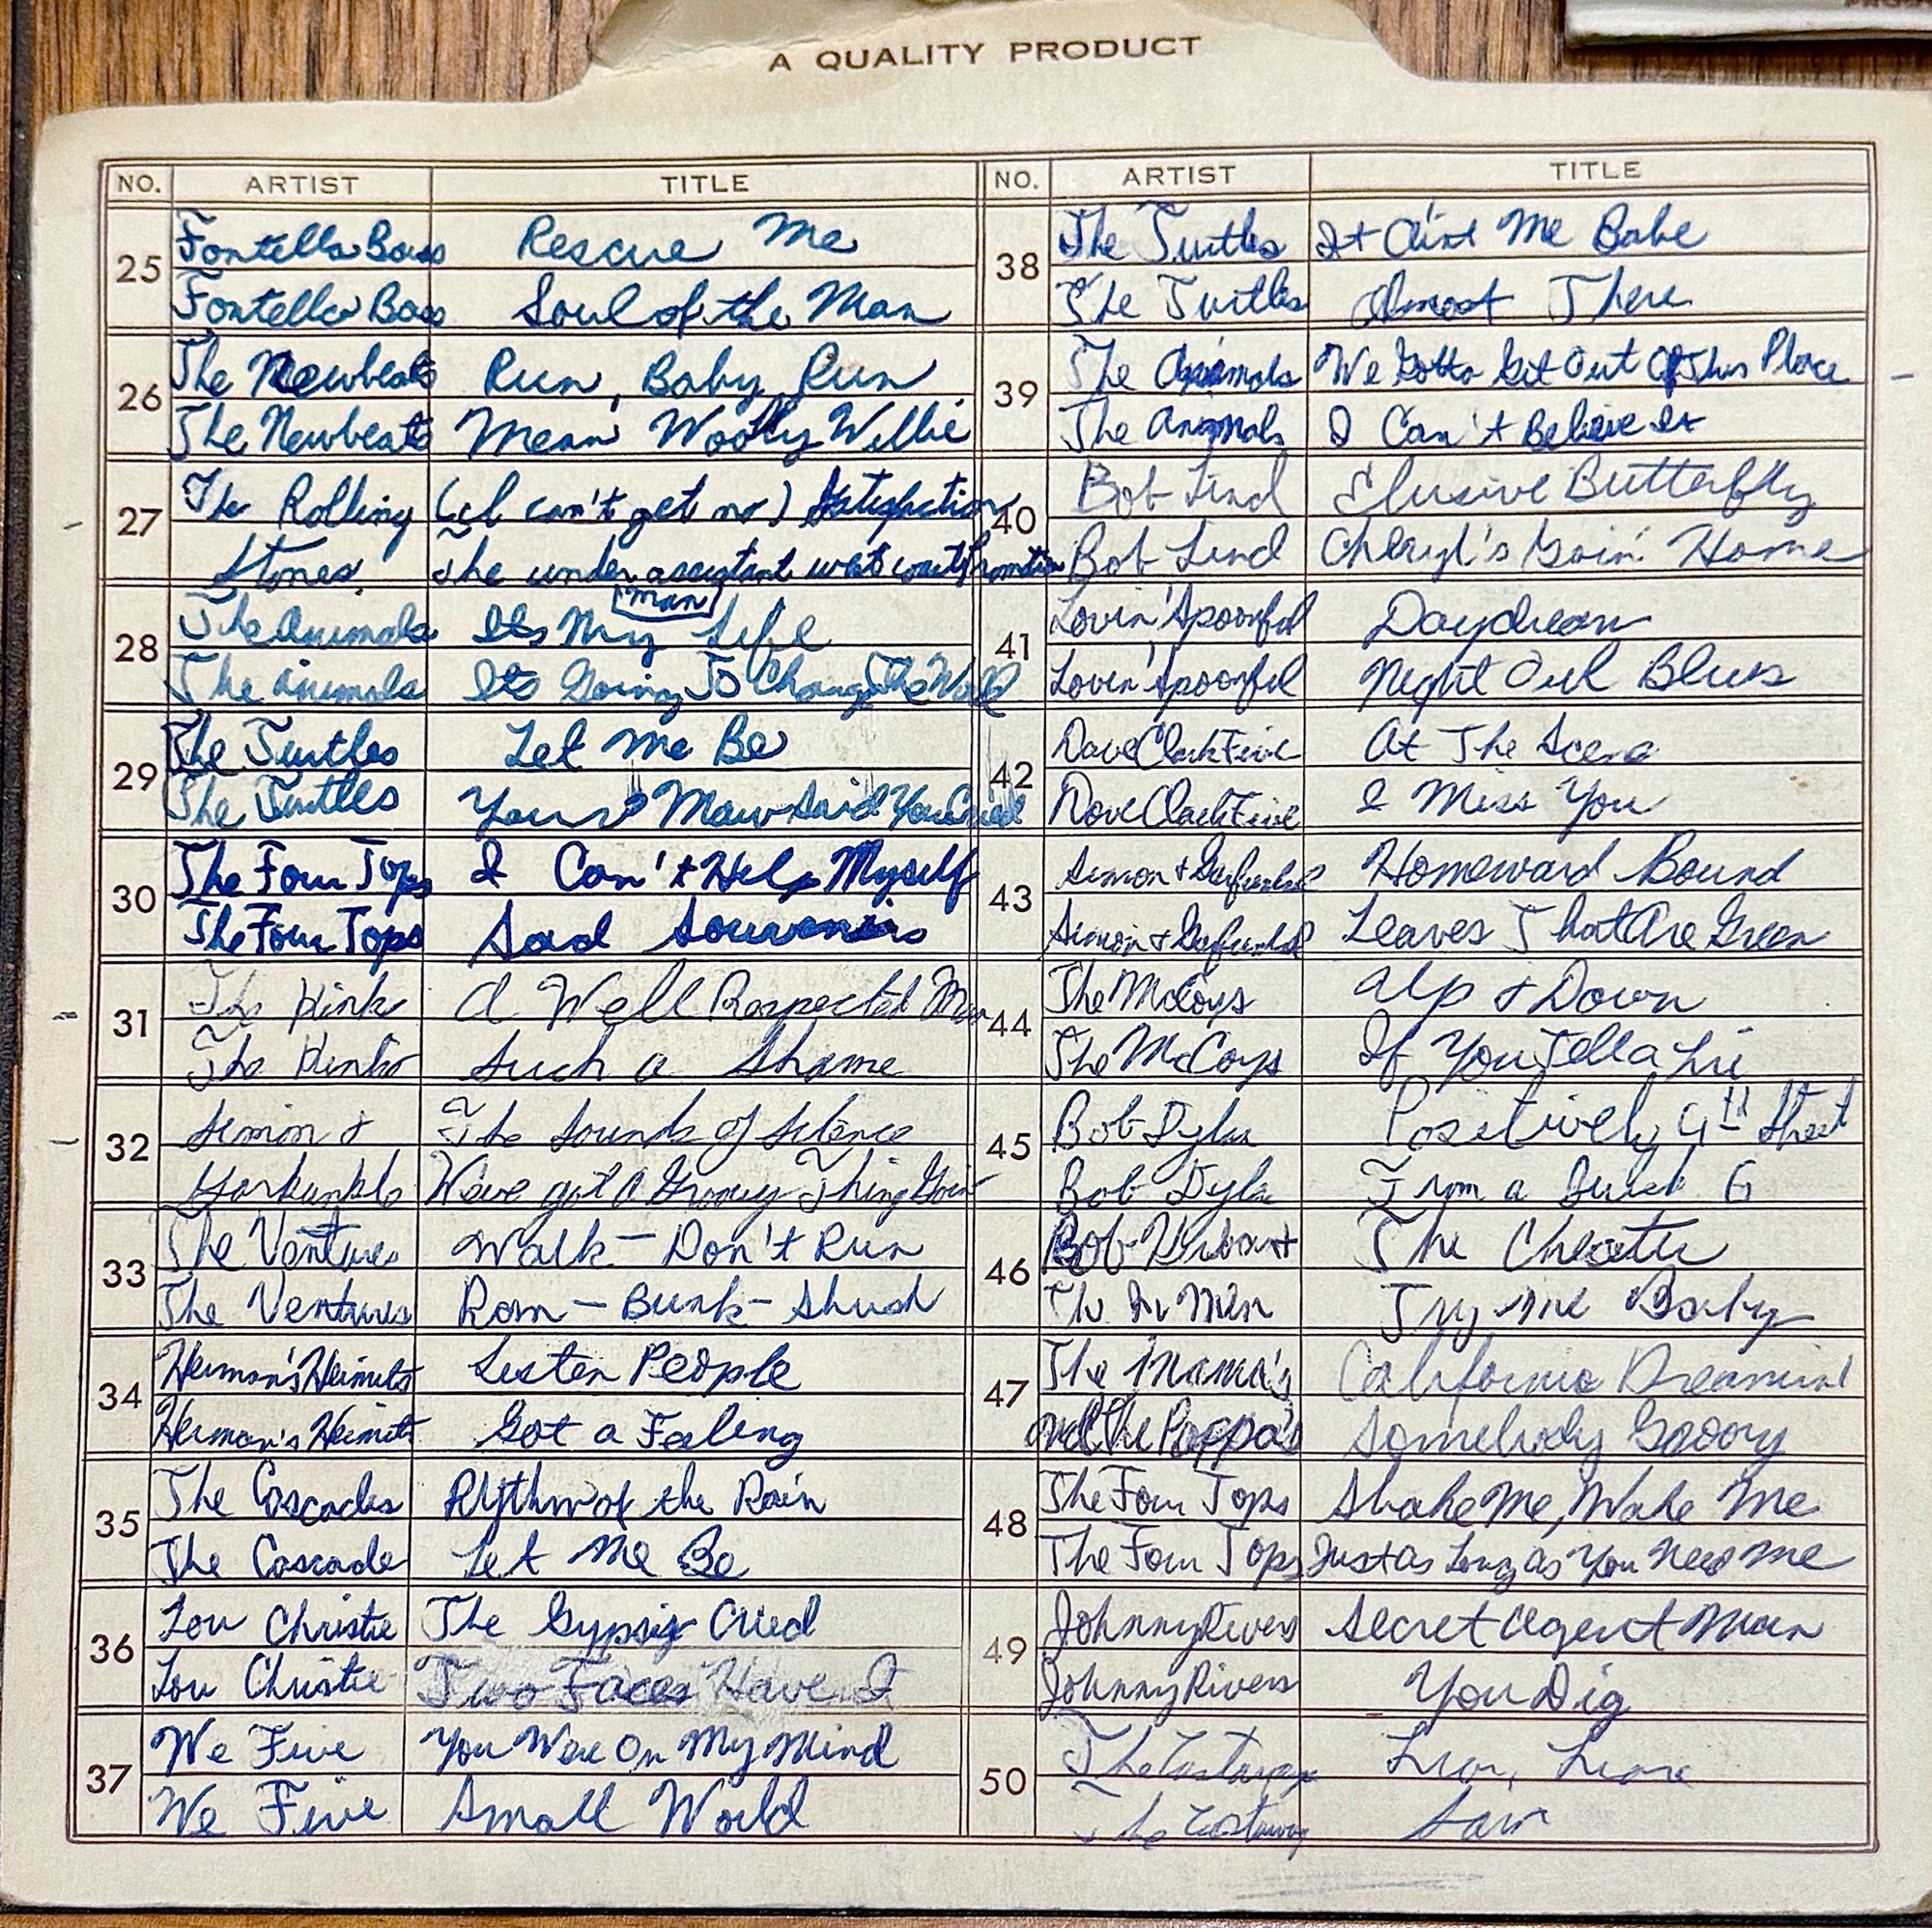 A QUALITY PRODUCT
NO. ARTIST TITLE
25 Fontella Bass Rescue Me
Fontella Bass Soul of the Man
26 The Newbeats Run, Baby Run
The Newbeats Mean Woolly Willie
27 The Rolling (I can't get no) Satisfaction
Stones The under assistant west coast Promotion
man
28 The Animals Its My Life
The Animals Its Going To Change The World
29 The Turtles Let Me Be
The Turtles Your Maw Said You Cried
30 The Four Tops I Can't Help Myself
The Four Tops Sad Souvenirs
31 The Kink A Well Respected Man
The Kinks Such a Shame
32 Simon & The Sounds of Silence
Garkunkle Weve got a Groovy Thing Goin
33 The Ventures Walk - Don't Run
The Ventures Ram - Bunk - Shush
34 Herman's Hermits Listen People
Herman's Hermits Got a Feeling
35 The Cascades Rhythm of the Rain
The Cascade Let Me Be
36 Lou Christie The Gypsy Cried
Lou Christie Two Faces Have I
37 We Five You Were On My Mind
We Five Small World
NO. ARTIST TITLE
38 The Turtles It Ain't Me Babe
The Turtles Almost There
39 The Animals We Gotta Get Out Of This Place
The Animals I Can't Believe It
40 Bob Lind Elusive Butterfly
Bob Lind Cheryl's Goin' Home
41 Lovin' Spoonful Daydream
Lovin' Spoonful Night Owl Blues
42 Dave Clark Five At The Scene
Dave Clark Five I Miss You
43 Simon & Garfunkel Homeward Bound
Simon & Garfunkel Leaves That Are Green
44 The McCoys Up & Down
The McCoys If You Tell a Lie
45 Bob Dylan Positively 4th Street
Bob Dylan From a Buick 6
46 Bob The Cheater
The In Men Try Me Baby
47 The Mama's California Dreamin'
and The Poppa's Somebody Groovy
48 The Four Tops Shake Me, Wake Me
The Four Tops Just As Long As You Need Me
49 Johnny Rivers Secret Agent Man
Johnny Rivers You Dig
50 The Liar, Liar
The Sam